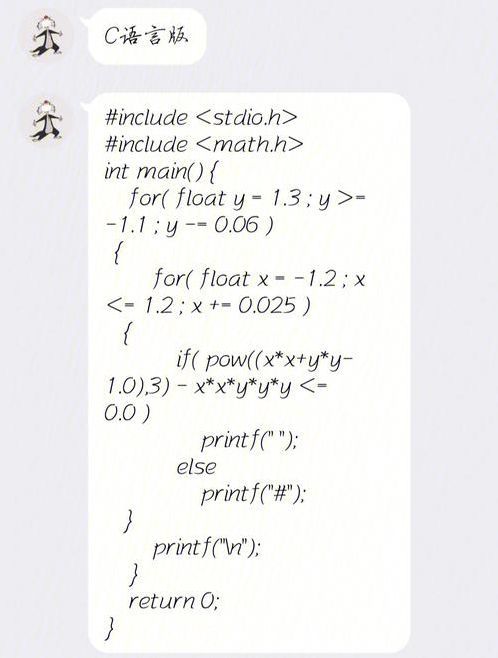 C语言版
#include <stdio.h>
#include <math.h>
int main() {
for( float y = 1.3 ; y >=
-1.1 ; y -= 0.06 )
{
for( float x = -1.2 ; x
<= 1.2 ; x += 0.025 )
{
if( pow((x*x+y*y-
1.0),3) - x*x*y*y*y <=
0.0 )
printf(" ");
else
printf("#");
}
printf("\n");
}
return 0;
}